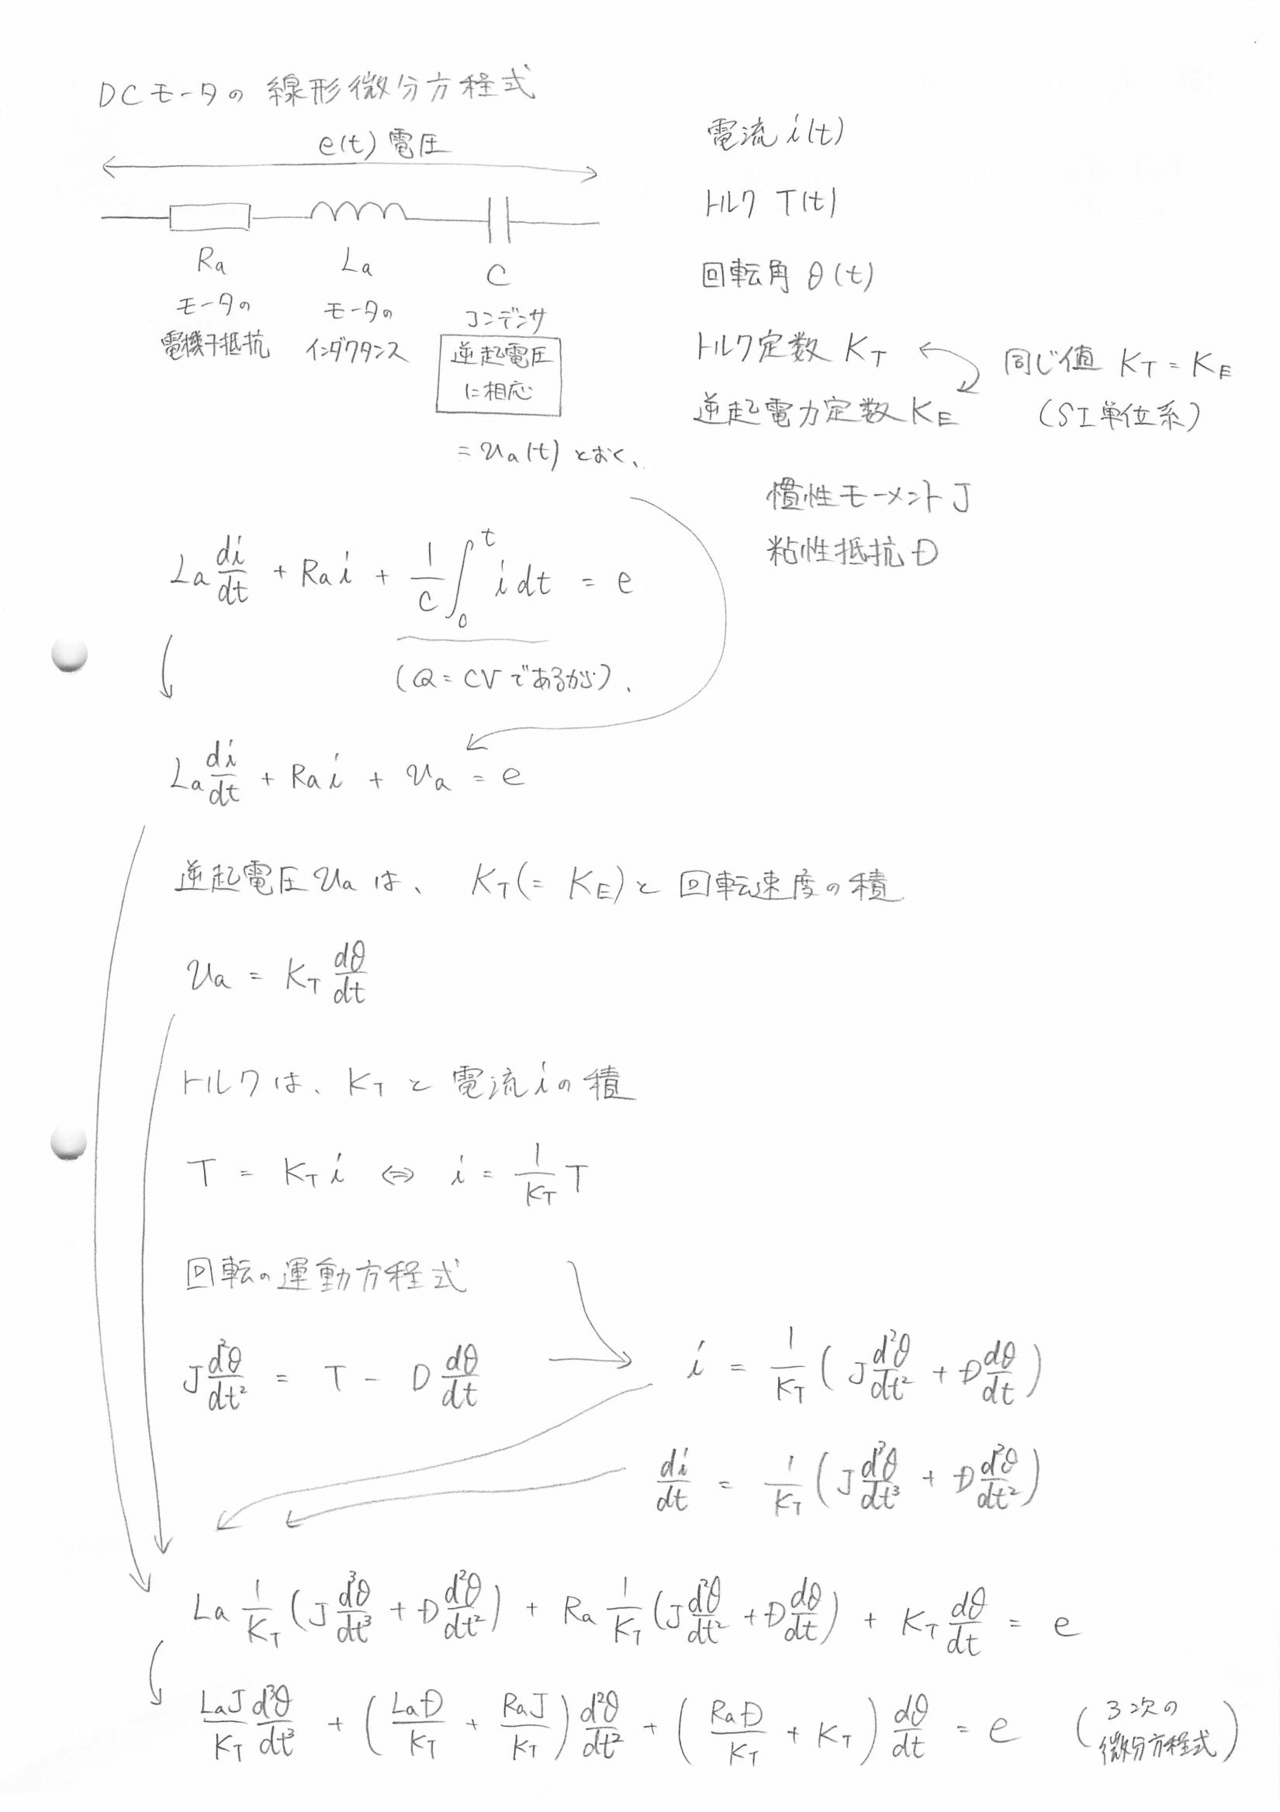 DCモータの 線形微分方程式
e(t) 電圧
Ra
モータの
電機子抵抗
La
モータの
インダクタンス
C
コンデンサ
逆起電圧
に相応
= ua(t) とおく、
電流 i(t)
トルク T(t)
回転角 θ(t)
トルク定数 KT
逆起電力定数 KE
同じ値 KT = KE
(SI単位系)
慣性モーメント J
粘性抵抗 D
La di/dt + Ra i + 1/C ∫₀ᵗ i dt = e
(Q = CV であるから).
La di/dt + Ra i + ua = e
逆起電圧 ua は、 KT(= KE)と 回転速度の積
ua = KT dθ/dt
トルクは、KT と 電流 i の積
T = KT i ⇔ i = 1/KT T
回転の運動方程式
J d²θ/dt² = T - D dθ/dt
i = 1/KT ( J d²θ/dt² + D dθ/dt )
di/dt = 1/KT ( J d³θ/dt³ + D d²θ/dt² )
La 1/KT ( J d³θ/dt³ + D d²θ/dt² ) + Ra 1/KT ( J d²θ/dt² + D dθ/dt ) + KT dθ/dt = e
LaJ/KT d³θ/dt³ + ( LaD/KT + RaJ/KT ) d²θ/dt² + ( RaD/KT + KT ) dθ/dt = e
(3次の
微分方程式)